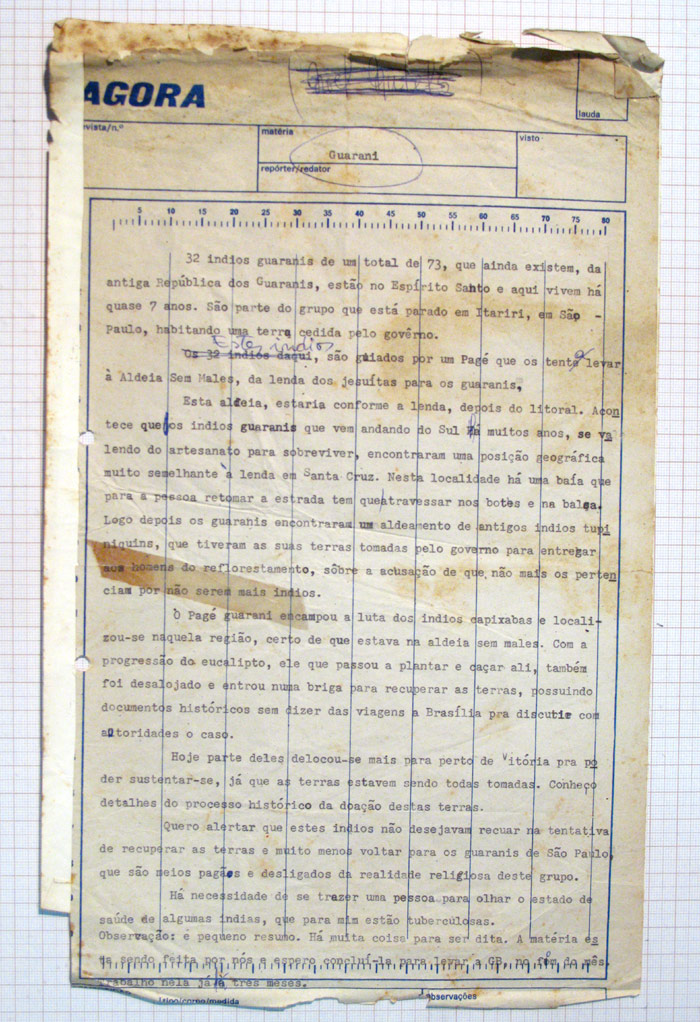 AGORA
lauda
evista/n.º
matéria
visto
Guarani
repórter/redator
5 10 15 20 25 30 35 40 45 50 55 60 65 70 75 80
32 indios guaranis de um total de 73, que ainda existem, da
antiga República dos Guaranis, estão no Espírito Santo e aqui vivem há
quase 7 anos. São parte do grupo que está parado em Itariri, em São -
Paulo, habitando uma terra cedida pelo govêrno.
Estes indios
Os 32 indios daqui, são guiados por um Pagé que os tenta levar
à Aldeia Sem Males, da lenda dos jesuítas para os guaranis,
Esta aldeia, estaria conforme a lenda, depois do litoral. Acon
tece que os indios guaranis que vem andando do Sul há muitos anos, se va
lendo do artesanato para sobreviver, encontraram uma posição geográfica
muito semelhante à lenda em Santa Cruz. Nesta localidade há uma baía que
para a pessoa retomar a estrada tem queatravessar nos botes e na balsa.
Logo depois os guaranis encontraram um aldeamento de antigos indios tupi
niquins, que tiveram as suas terras tomadas pelo governo para entregar
aos homens do reflorestamento, sôbre a acusação de que não mais os perten
ciam por não serem mais indios.
O Pagé guarani encampou a luta dos indios capixabas e locali-
zou-se naquela região, certo de que estava na aldeia sem males. Com a
progressão do eucalipto, ele que passou a plantar e caçar ali, também
foi desalojado e entrou numa briga para recuperar as terras, possuindo
documentos históricos sem dizer das viagens a Brasília pra discutir com
autoridades o caso.
Hoje parte deles delocou-se mais para perto de Vitória pra po
der sustentar-se, já que as terras estavem sendo todas tomadas. Conheço
detalhes do processo histórico da doação destas terras.
Quero alertar que estes indios não desejavam recuar na tentativa
de recuperar as terras e muito menos voltar para os guaranis de São Paulo,
que são meios pagãos e desligados da realidade religiosa deste grupo.
Há necessidade de se trazer uma pessoa para olhar o estado de
saúde de algumas indias, que para mim estão tuberculosas.
Observação: é pequeno resumo. Há muita coisa para ser dita. A matéria es
tá sendo feita por nós e espero concluí-la para levar a GB, no fim do mês.
Trabalho nela já há três meses.
tipo/corpo/medida
observações